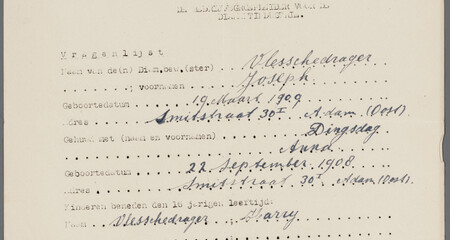 Vragenlijst
Naam van de(n) Diam.bew.(ster) Vlesschedrager
" voornamen Joseph
Geboortedatum 19 Maart 1909
Adres Smitstraat 30 I A.dam (Oost)
Gehuwd met (naam en voornamen) Dingsdag
Anna
Geboortedatum 22 September 1908
Adres Smitstraat 30 I A.dam (Oost).
Kinderen beneden den 16 jarigen leeftijd:
Naam Vlesschedrager Harry